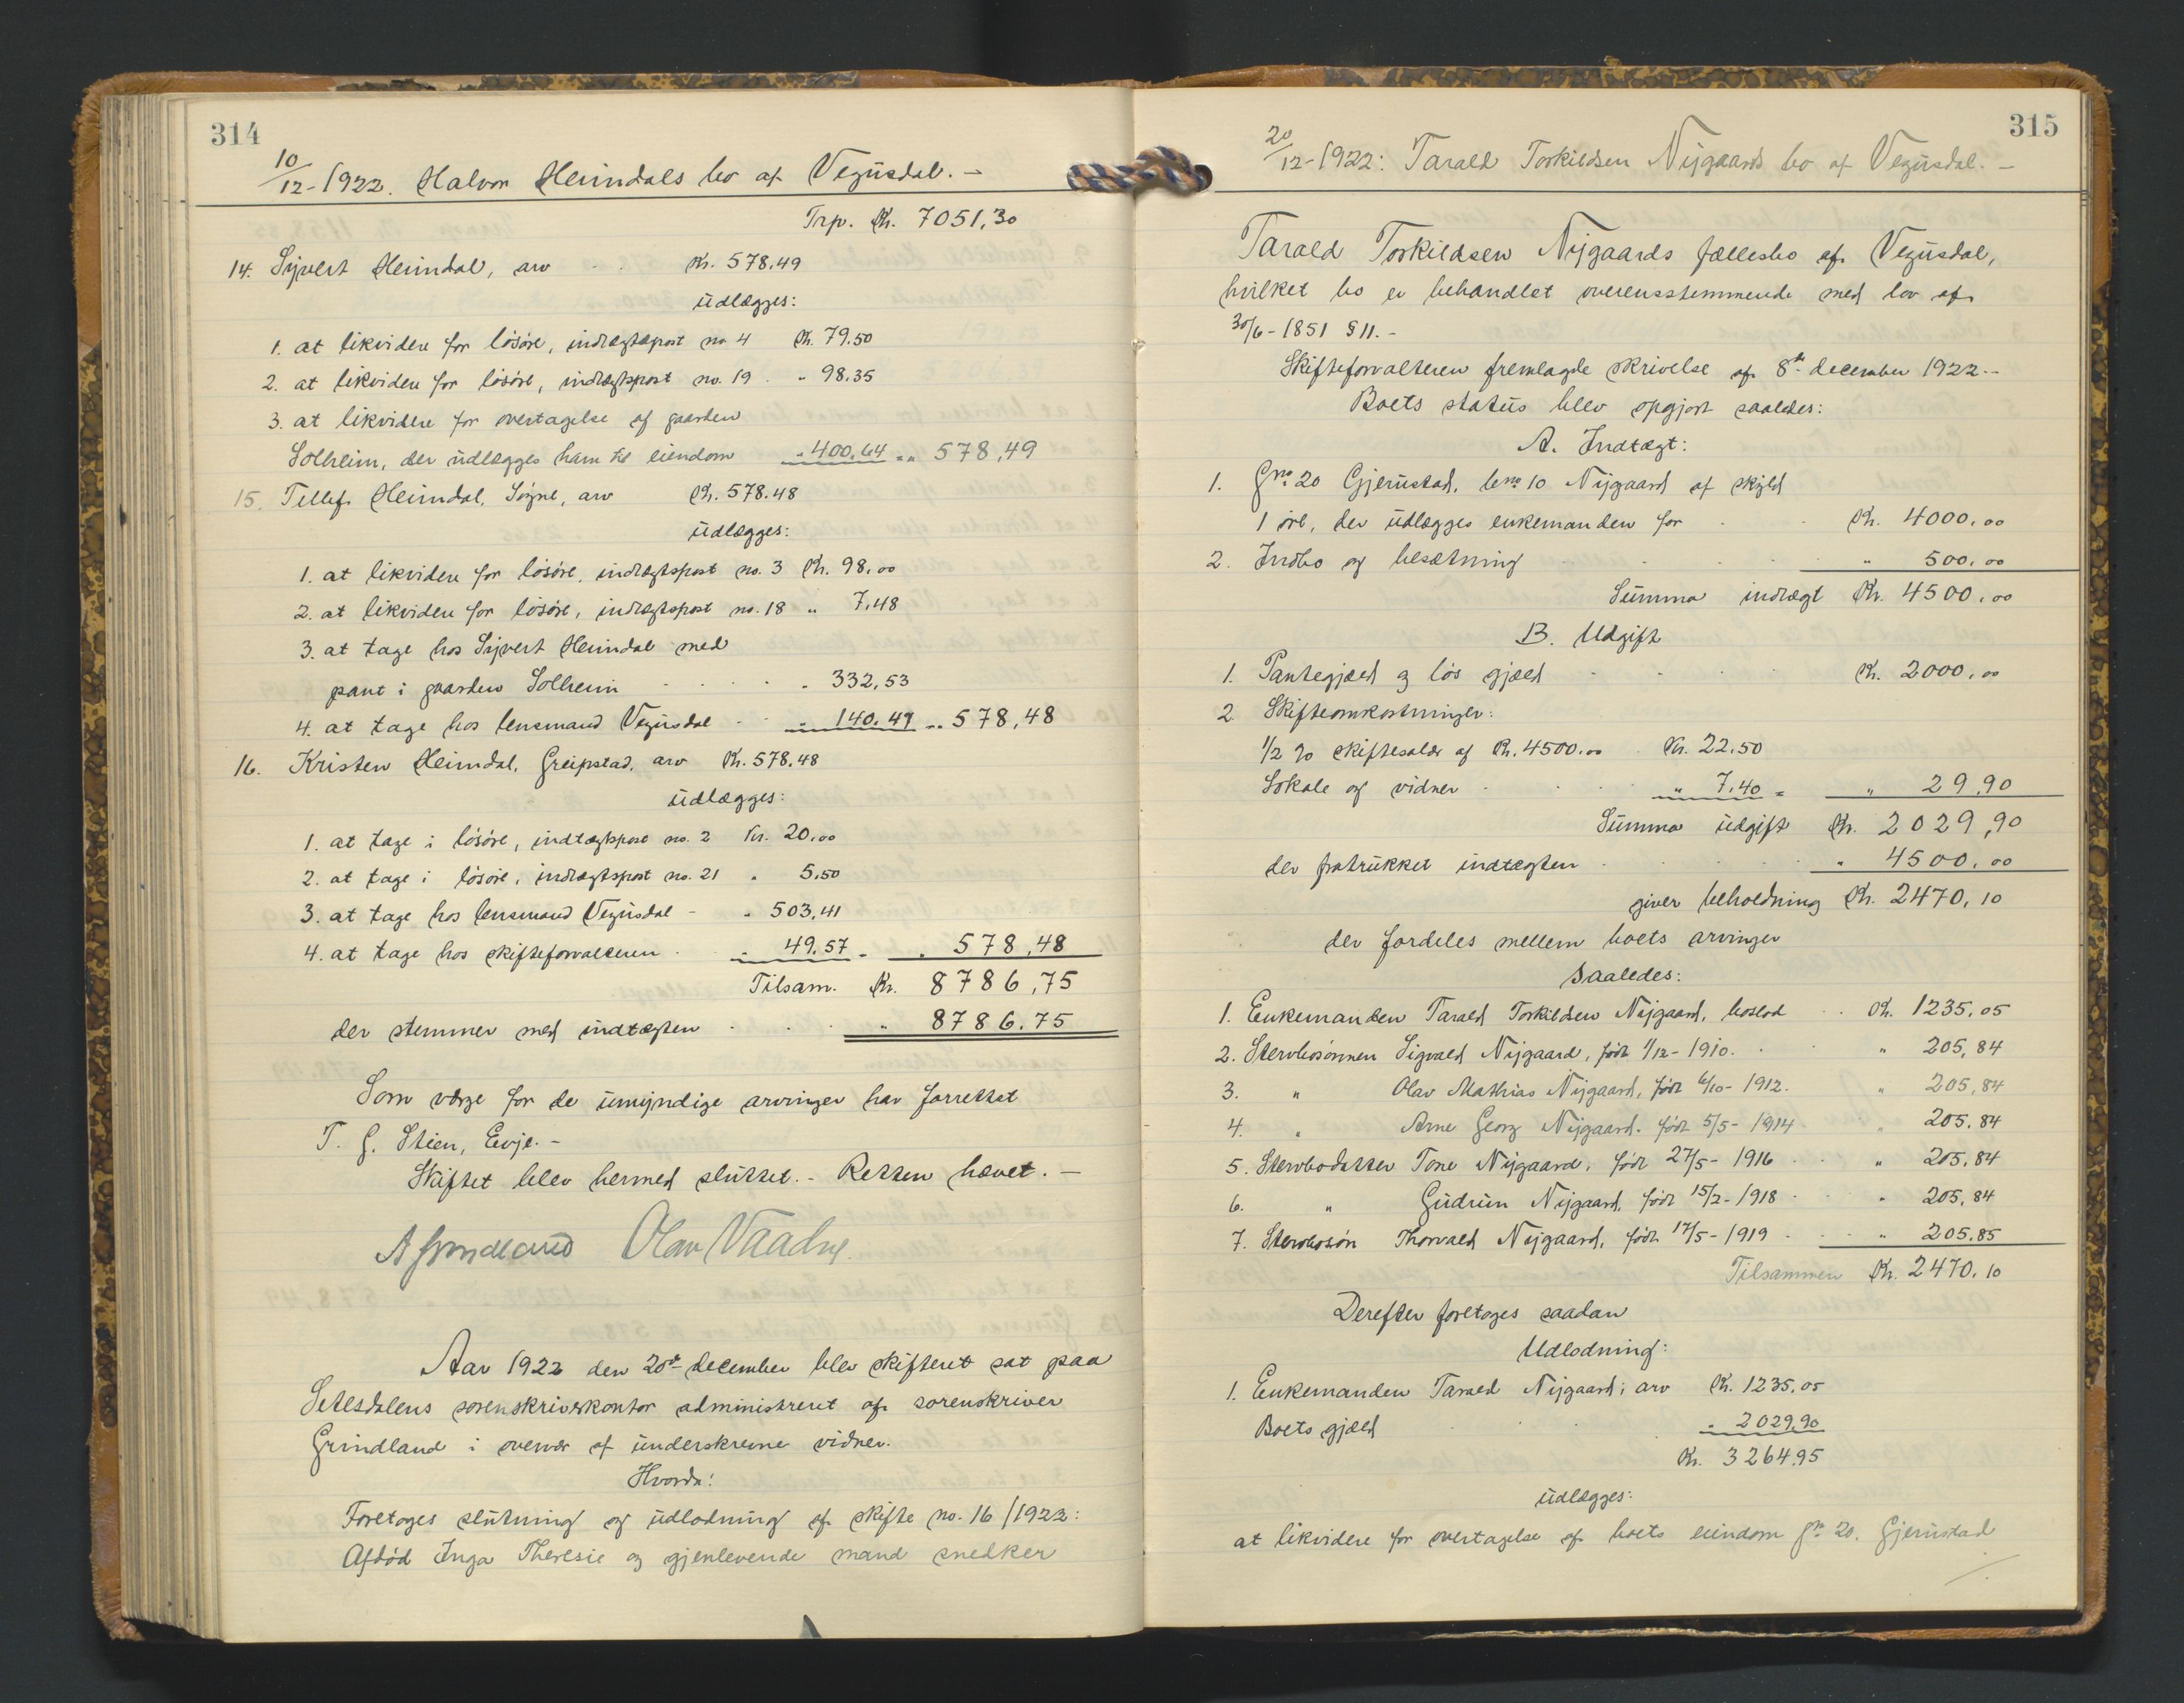 314
10/12-1922. Halvor Heimdals bo af Vegusdal. -
Trp. Kr. 7051,30
14. Syvert Heimdal, arv Kr. 578,49
udlægges:
1. at likvidere for løsøre, indtægtspost no. 4 Kr. 79.50
2. at likvidere for løsøre, indtægtspost no. 19 " 98.35
3. at likvidere for overtagelse af gaarden
Solheim, der udlægges ham til eiendom " 400,64 = " 578,49
15. Tellef Heimdal, Søgne, arv Kr. 578.48
udlægges:
1. at likvidere for løsøre, indtægtspost no. 3 Kr. 98,00
2. at likvidere for løsøre, indtægtspost no. 18 " 7,48
3. at tage hos Syvert Heimdal med
pant i gaarden Solheim " 332,53
4. at tage hos lensmand Vegusdal " 140.47 = " 578,48
16. Kristen Heimdal, Greipstad, arv Kr. 578,48
udlægges:
1. at tage i løsøre, indtægtspost no. 2 Kr. 20,00
2. at tage i løsøre, indtægtspost no. 21 " 5,50
3. at tage hos lensmand Vegusdal - " 503,41
4. at tage hos skifteforvalteren " 49,57 = " 578,48
Tilsam. Kr. 8786,75
der stemmer med indtægten " 8786.75
Som værge for de umyndige arvinger har forrettet
T. G. Stien, Evje. -
Skiftet blev hermed sluttet. - Retten hævet. -
A Grindland Olav Vaadne
Aar 1922 den 20de december blev skifteret sat paa
Setesdalens sorenskriverkontor administreret af sorenskriver
Grindland i overvær af underskrevne vidner.
Hvorda:
Foretoges slutning og udlodning af skifte no. 16/1922:
Afdød Inga Theresie og gjenlevende mand snedker
315
20/12-1922: Tarald Torkildsen Nygaards bo af Vegusdal. -
Tarald Torkildsen Nygaards fællesbo af Vegusdal,
hvilket bo er behandlet overensstemmende med lov af
30/6-1851 § 11. -
Skifteforvalteren fremlagde skrivelse af 8de december 1922. -
Boets status blev opgjort saaledes:
A. Indtægt:
1. Gno 20 Gjerustad, bno 10 Nygaard af skyld
1 øre, der udlægges enkemanden for Kr. 4000,00
2. Indbo og besætning " 500,00
Summa indtægt Kr. 4500,00
B. Udgift
1. Pantegjæld og løs gjæld Kr. 2000,00
2. Skifteomkostninger:
1/2 % skiftesalær af Kr. 4500.00 Kr. 22.50
Lokale og vidner " 7,40 = " 29,90
Summa udgift Kr. 2029,90
der fratrukket indtægten " 4500,00
giver beholdning Kr. 2470,10
der fordeles mellem boets arvinger
saaledes:
1. Enkemanden Tarald Torkildsen Nygaard, boslod Kr. 1235,05
2. Stervbosønnen Sigvald Nygaard, født 1/12-1910. " 205,84
3. " Olav Mathias Nygaard, født 6/10-1912. " 205,84
4. " Arne Georg Nygaard. født 5/5-1914 " 205.84
5. Stervbodatter Tone Nygaard, født 27/5-1916 " 205,84
6. " Gudrun Nygaard, født 15/2-1918 " 205,84
7. Stervbosøn Thorvald Nygaard, født 17/5-1919 " 205.85
Tilsammen Kr. 2470,10
Derefter foretoges saadan
Udlodning:
1. Enkemanden Tarald Nygaard; arv Kr. 1235,05
Boets gjæld " 2029,90
Kr. 3264,95
udlægges:
at likvidere for overtagelse af boets eiendom gno 20. Gjerustad